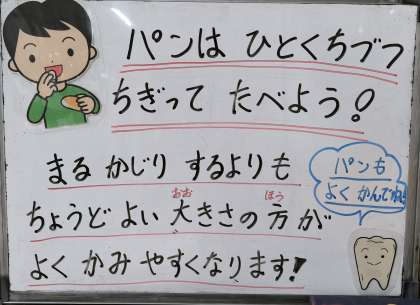 パンは ひとくちづつ
ちぎって たべよう!
まる かじり するよりも
おお ほう
ちょうど よい 大きさの 方が
よく かみ やすくなります!
パンも
よく かんでね